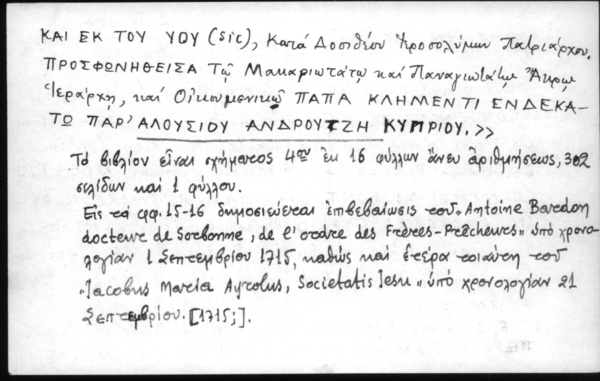 ΚΑΙ ΕΚ ΤΟΥ ΥΟΥ (sic), Κατά Δοσιθέου Ἱεροσολύμων Πατριάρχου.
ΠΡΟΣΦΩΝΗΘΕΙΣΑ Τῷ Μακαριωτάτῳ καί Παναγιωτάτῳ Ἄκρῳ
Ἱεράρχῃ, καί Οἰκουμενικῷ ΠΑΠΑ ΚΛΗΜΕΝΤΙ ΕΝΔΕΚΑ-
ΤΩ ΠΑΡ' ΑΛΟΥΣΙΟΥ ΑΝΔΡΟΥΤΖΗ ΚΥΠΡΙΟΥ. >>
Τό βιβλίον εἶναι σχήματος 4ου ἐκ 16 φύλλων ἄνευ ἀριθμήσεως, 302
σελίδων καί 1 φύλλου.
Εἰς τά φφ. 15-16 δημοσιεύεται ἐπιβεβαίωσις τοῦ «Antoine Bovedon
docteur de Sorbonne, de l'ordre des Frères-Prêcheurs» ὑπό χρονο-
λογίαν 1 Σεπτεμβρίου 1715, καθώς καί ἑτέρα τοιαύτη τοῦ
«Jacobus Maria Ayrolus, Societatis Jesu» ὑπό χρονολογίαν 21
Σεπτεμβρίου. [1715;].